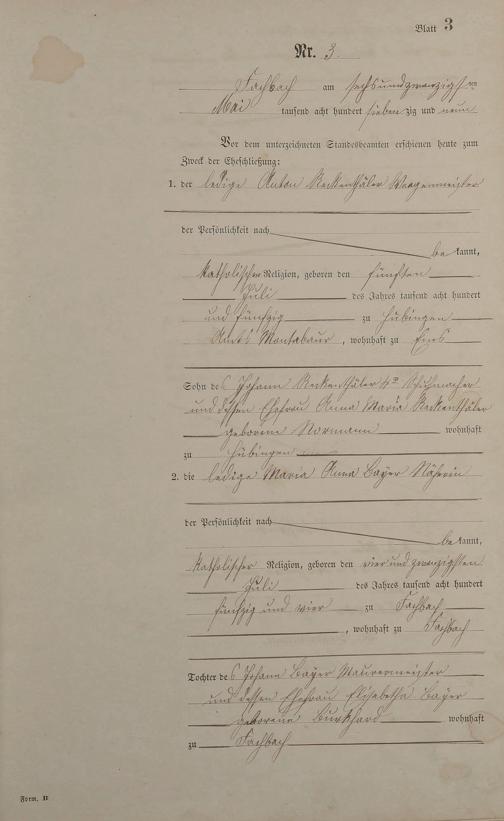 Blatt 3
Nr. 3.
Fachbach am sechsundzwanzigsten
Mai tausend acht hundert siebenzig und neun
Vor dem unterzeichneten Standesbeamten erschienen heute zum
Zweck der Eheschließung:
1. der ledige Anton Reckenthäler Wagenmeister
der Persönlichkeit nach
bekannt,
katholischer Religion, geboren den fünften
Juli des Jahres tausend acht hundert
und fünfzig zu Hübingen
Amts Montabaur, wohnhaft zu Ems
Sohn des Johann Reckenthäler Schuhmacher
und dessen Ehefrau Anna Maria Reckenthäler
geborene Normann wohnhaft
zu Hübingen
2. die ledige Maria Anna Bayer Näherin
der Persönlichkeit nach
bekannt,
katholischer Religion, geboren den vierundzwanzigsten
Juli des Jahres tausend acht hundert
fünfzig und vier zu Fachbach
, wohnhaft zu Fachbach
Tochter des Johann Bayer Maurermeister
und dessen Ehefrau Elisabetha Bayer
geborene Burkhard wohnhaft
zu Fachbach
Form. II